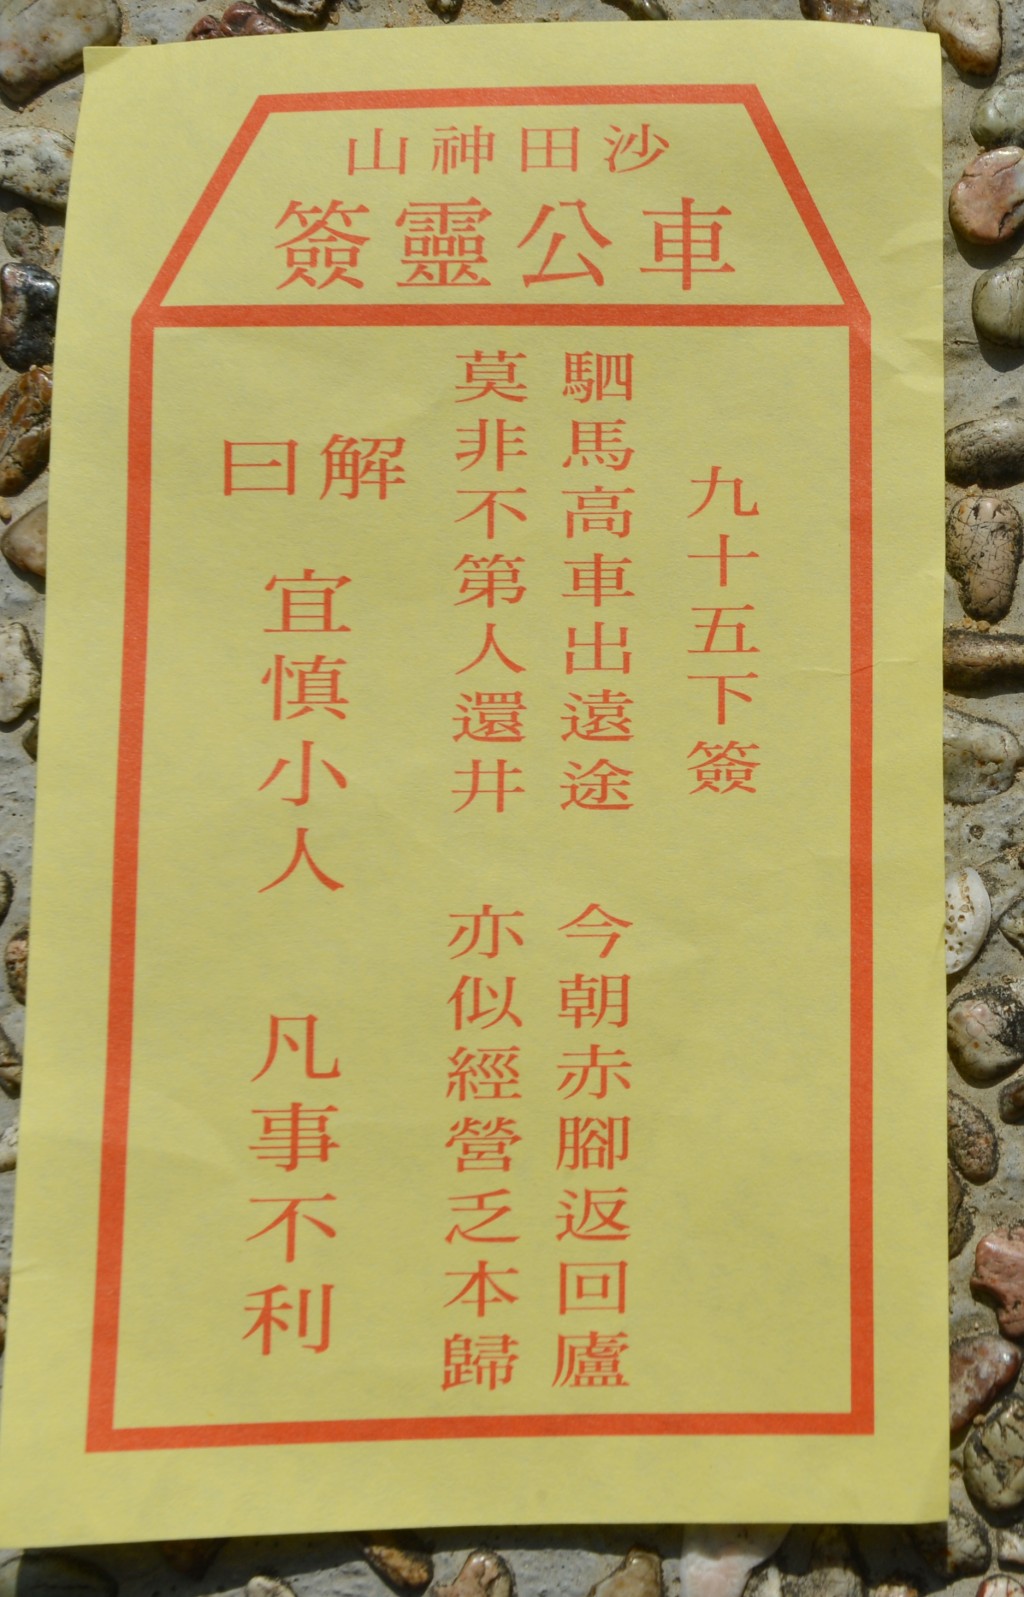 沙田神山
車公靈簽
九十五下簽
駟馬高車出遠途　今朝赤腳返回廬
莫非不第人還井　亦似經營乏本歸
解曰
宜慎小人　凡事不利